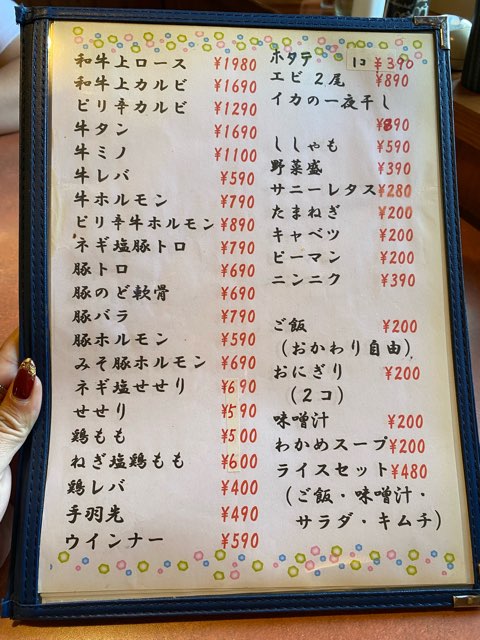 和牛上ロース ¥1980
和牛上カルビ ¥1690
ピリ辛カルビ ¥1290
牛タン ¥1690
牛ミノ ¥1100
牛レバ ¥590
牛ホルモン ¥790
ピリ辛牛ホルモン ¥890
ネギ塩豚トロ ¥790
豚トロ ¥690
豚のど軟骨 ¥690
豚バラ ¥790
豚ホルモン ¥590
みそ豚ホルモン ¥690
ネギ塩せせり ¥690
せせり ¥590
鶏もも ¥500
ねぎ塩鶏もも ¥600
鶏レバ ¥400
手羽先 ¥490
ウインナー ¥590
ホタテ 1コ ¥390
エビ 2尾 ¥890
イカの一夜干し
¥890
ししゃも ¥590
野菜盛 ¥390
サニーレタス ¥280
たまねぎ ¥200
キャベツ ¥200
ピーマン ¥200
ニンニク ¥390
ご飯 ¥200
(おかわり自由)
おにぎり ¥200
(2コ)
味噌汁 ¥200
わかめスープ ¥200
ライスセット ¥480
(ご飯・味噌汁・
サラダ・キムチ)